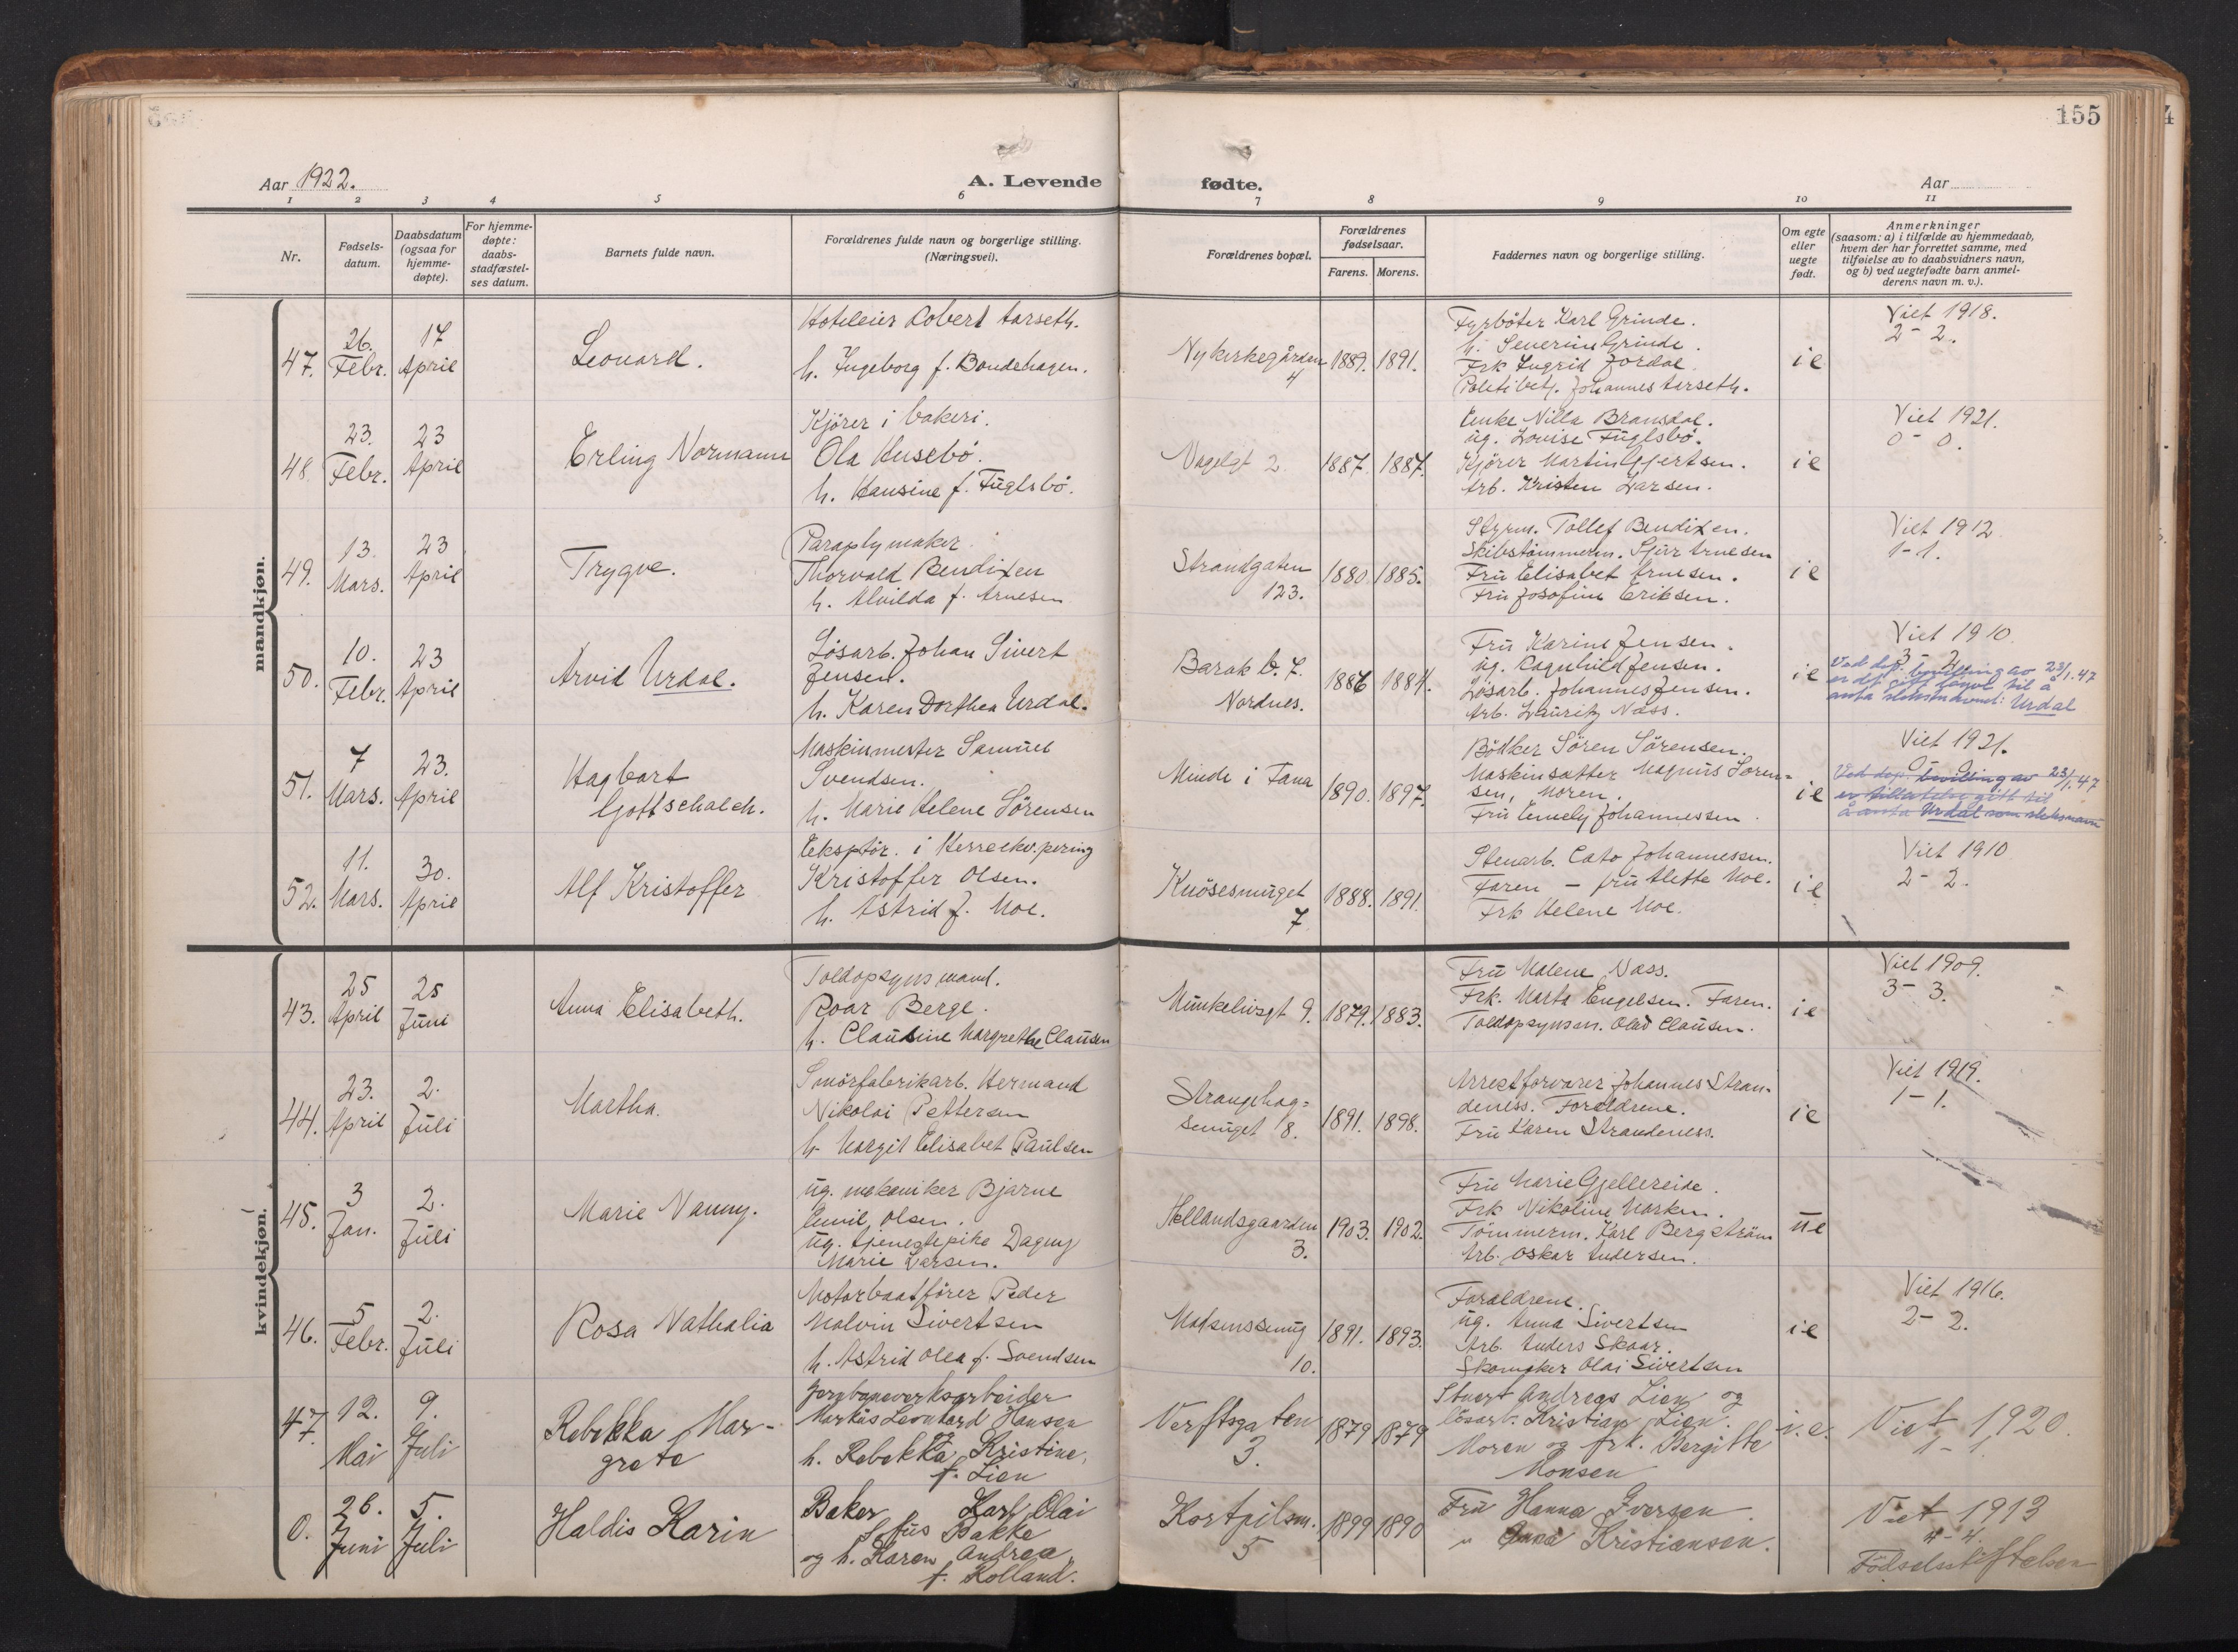 155
Aar 1922.
A. Levende
fødte.
Aar
1 2 3 4 5 6 7 8 9 10 11
Nr.
Fødsels-
datum.
Daabsdatum
(ogsaa for
hjemme-
døpte).
For hjemme-
døpte:
daabs-
stadfæstel-
ses datum.
Barnets fulde navn.
Forældrenes fulde navn og borgerlige stilling.
(Næringsvei).
Forældrenes bopæl.
Forældrenes
fødselsaar.
Farens. Morens.
Faddernes navn og borgerlige stilling.
Om egte
eller
uegte
født.
Anmerkninger
(saasom: a) i tilfælde av hjemmedaab,
hvem der har forrettet samme, med
tilføielse av to daabsvidners navn,
og b) ved uegtefødte barn anmel-
derens navn m. v.).
mandkjøn.
47.
26.
Febr.
17
April
Leonard.
Hoteleier Robert Aarseth.
h. Ingeborg f. Bondehagen.
Nykirkegården
4
1889. 1891.
Fyrböter Karl Grinde.
h. Severine Grinde.
Frk Ingrid Jordal.
Politibetj. Johannes Aarseth.
i e
Viet 1918.
2 - 2.
48.
23.
Febr.
23
April
Erling Normann
Kjörer i bakeri.
Ola Husebö.
h. Hansine f. Fuglsbö.
Nagelgt 2.
1887. 1887.
Enke Nilla Bransdal.
ug. Lovise Fuglsbö.
Kjörer Martin Gjertsen.
Arb. Kristen Larsen.
i e
Viet 1921.
0 - 0.
49.
13.
Mars.
23
April
Trygve.
Paraplymaker
Thorvald Bendixen
h. Alvilda f. Arnesen
Strandgaten
123.
1880. 1885.
Styrm. Tollef Bendixen.
Skibstömmerm. Sjur Arnesen
Fru Elisabet Arnesen.
Fru Josefine Eriksen.
i e
Viet 1912
1 - 1.
50.
10.
Febr.
23
April
Arvid Urdal.
Lösarb. Johan Sivert
Jensen.
h. Karen Dorthea Urdal.
Barak b. 7.
Nordnes.
1886 1884.
Fru Karine Jensen.
ug. Ragnhild Jensen.
Lösarb. Johannes Jensen.
Arb. Lauritz Næss.
i e
Viet 1910.
3 - 2.
Ved dep. bevilling av 23/1.47
er det gitt løyve til å
anta slektsnavnet: Urdal
51.
7
Mars.
23.
April
Hagbart
Gottschalch.
Maskinmester Samuel
Svendsen.
h. Marie Helene Sörensen
Minde i Fana
1890. 1897.
Bödker Sören Sörensen.
Maskinsætter Magnus Sören-
sen, Moren.
Fru Emely Johannessen
i e
Viet 1921.
0 - 0.
Ved dep. bevilling av 23/1.47
er tillatelse gitt til
å anta Urdal som slektsnavn
52.
11.
Mars.
30.
April
Alf Kristoffer
Eksptör. i Herreekv.pering
Kristoffer Olsen.
h. Astrid f. Moe.
Knösesmuget
7
1888. 1891.
Stenarb. Cato Johannessen.
Faren - fru Alette Moe.
Frk Helene Moe.
i e
Viet 1910
2 - 2.
kvindekjøn.
43.
25
April
25
Juni
Anna Elisabeth.
Toldopsynsmand.
Roar Berge.
h. Clausine Margrethe Clausen
Munkelivsgt 9.
1879. 1883.
Fru Malene Næss.
Frk. Marta Engelsen. Faren.
Toldopsynsm. Olaf Clausen.
i e
Viet 1909.
3 - 3.
44.
23.
April
2.
Juli
Martha.
Smörfabrikarb. Hermand
Nikolai Pettersen
h. Margit Elisabet Paulsen
Strangehag-
smuget 18.
1891. 1898.
Arrestforvarer Johannes Stran-
deness. Forældrene.
Fru Karen Strandeness.
i e
Viet 1919.
1 - 1.
45.
3
Jan.
2.
Juli
Marie Nanny.
ug. mekaniker Bjarne
Emil Olsen.
ug. tjenestepike Dagny
Marie Larsen.
Hellandsgaarden
3.
1903. 1902.
Fru Marie Gjellereide.
Frk Nikoline Marken.
Tömmerm. Karl Bergström
Arb. Oskar Andersen.
ue
46.
5
Febr.
2.
Juli
Rosa Nathalia
Motorbaatförer Peder
Malvin Sivertsen
h. Astrid Olea f. Svendsen
Madsenssmug
10.
1891. 1893.
Forældrene.
ug. Anna Sivertsen
Arb. Anders Skaar.
Skomaker Olai Sivertsen
i e
Viet 1916.
2 - 2.
47.
12.
Mai
9.
Juli
Rebekka Mar-
grete
Jernbaneverksarbeider
Markus Leonhard Hansen
og
h. Rebekka Kristine,
f. Lien
Verftsgaten
3.
1879 1879
Stuert Andreas Lien og
lösarb. Kristian Lien.
Moren og frk. Bergitte
Monsen
i. e.
Viet 1920.
1 - 1.
0.
26.
Juni
5.
Juli
Haldis Karin
Baker Karl Olai
Sofus Bakke
og h. Karen Andrea
f. Kolland.
Kortpilsm.
5
1899 1890
Fru Hanna Iversen
" Anna Kristiansen.
Viet 1913
4 - 4.
Födselsstiftelsen